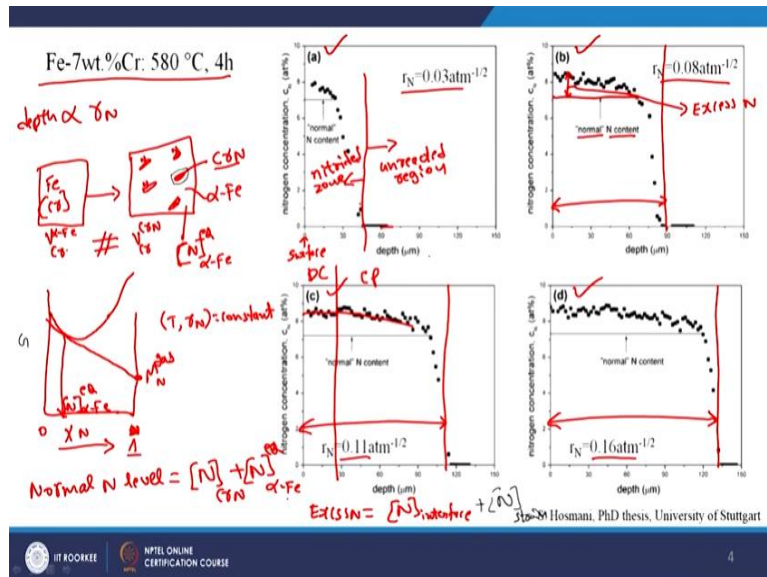 Fe-7wt.%Cr: 580 °C, 4h
depth α rN
Fe
[Cr]
CrN
α-Fe
V α-Fe Cr
#
V CrN Cr
[N] eq α-Fe
G
(T, rN)=constant
μ gas N
[N] eq α-Fe
0 XN 1
Normal N level = [N] CrN + [N] eq α-Fe
(a)
rN=0.03atm-1/2
"normal"
N content
nitrided
zone
unreacted
region
nitrogen concentration, cN (at%)
10
8
6
4
2
0
0 30 60 90 120 150
depth (μm)
surface
(b)
rN=0.08atm-1/2
Excess N
"normal" N content
nitrogen concentration, cN (at%)
10
8
6
4
2
0
0 30 60 90 120 150
depth (μm)
DC CP
(c)
"normal" N content
rN=0.11atm-1/2
nitrogen concentration, cN (at%)
10
8
6
4
2
0
0 30 60 90 120 150
depth (μm)
(d)
"normal" N content
rN=0.16atm-1/2
nitrogen concentration, cN (at%)
10
8
6
4
2
0
0 30 60 90 120 150
depth (μm)
Excss N = [N] interface + [N]
Hosmani, PhD thesis, University of Stuttgart
IIT ROORKEE
NPTEL ONLINE
CERTIFICATION COURSE
4